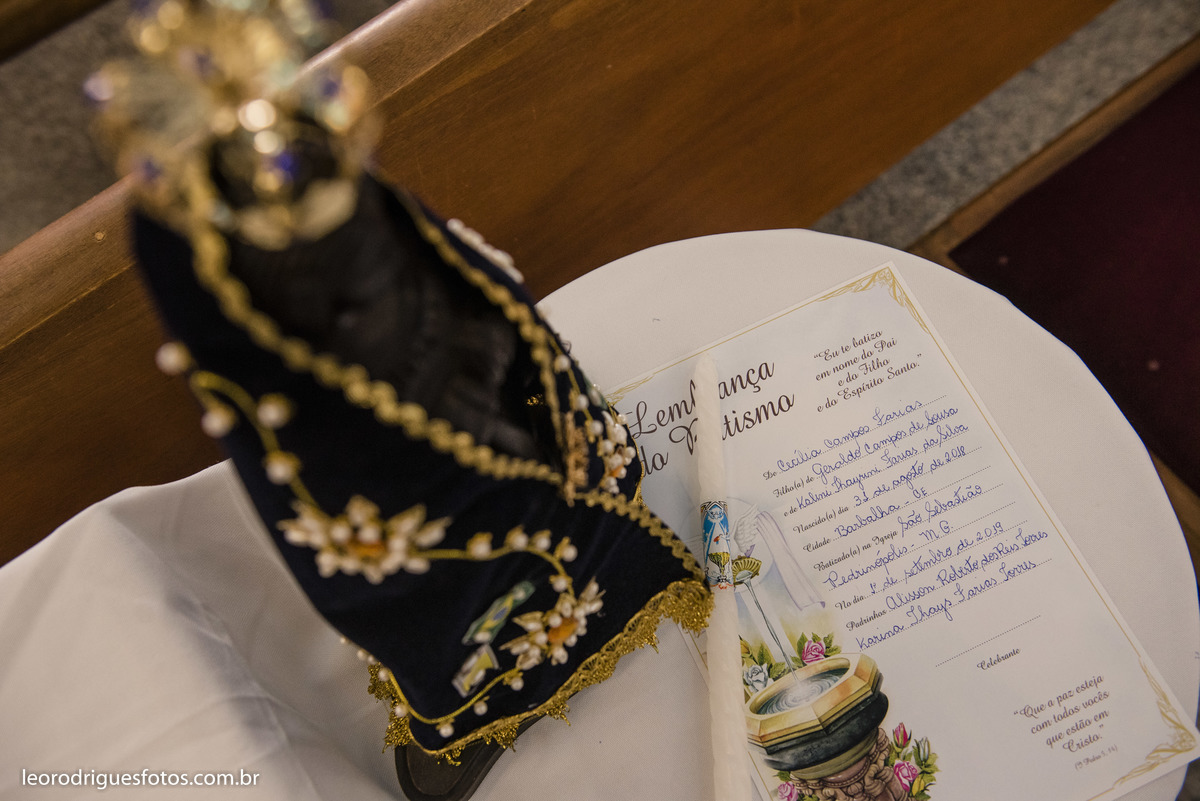 Lembrança
do Batismo
"Eu te batizo
em nome do Pai
e do Filho
e do Espírito Santo."
De Cecília Campos Farias
Filho(a) de Geraldo Campos de Sousa
e de Kalini Thayrini Farias da Silva
Nascido(a) dia 31 de agosto de 2018
Cidade Barbalha - CE
Batizado(a) na Igreja São Sebastião
Pedrinópolis - M.G.
No dia 1º de setembro de 2019
Padrinhos Alisson Roberto dos Reis Torres
Karina Thays Farias Torres
Celebrante
"Que a paz esteja
com todos vocês
que estão em
Cristo."
(1ª Pedro 5, 14)
leorodriguesfotos.com.br